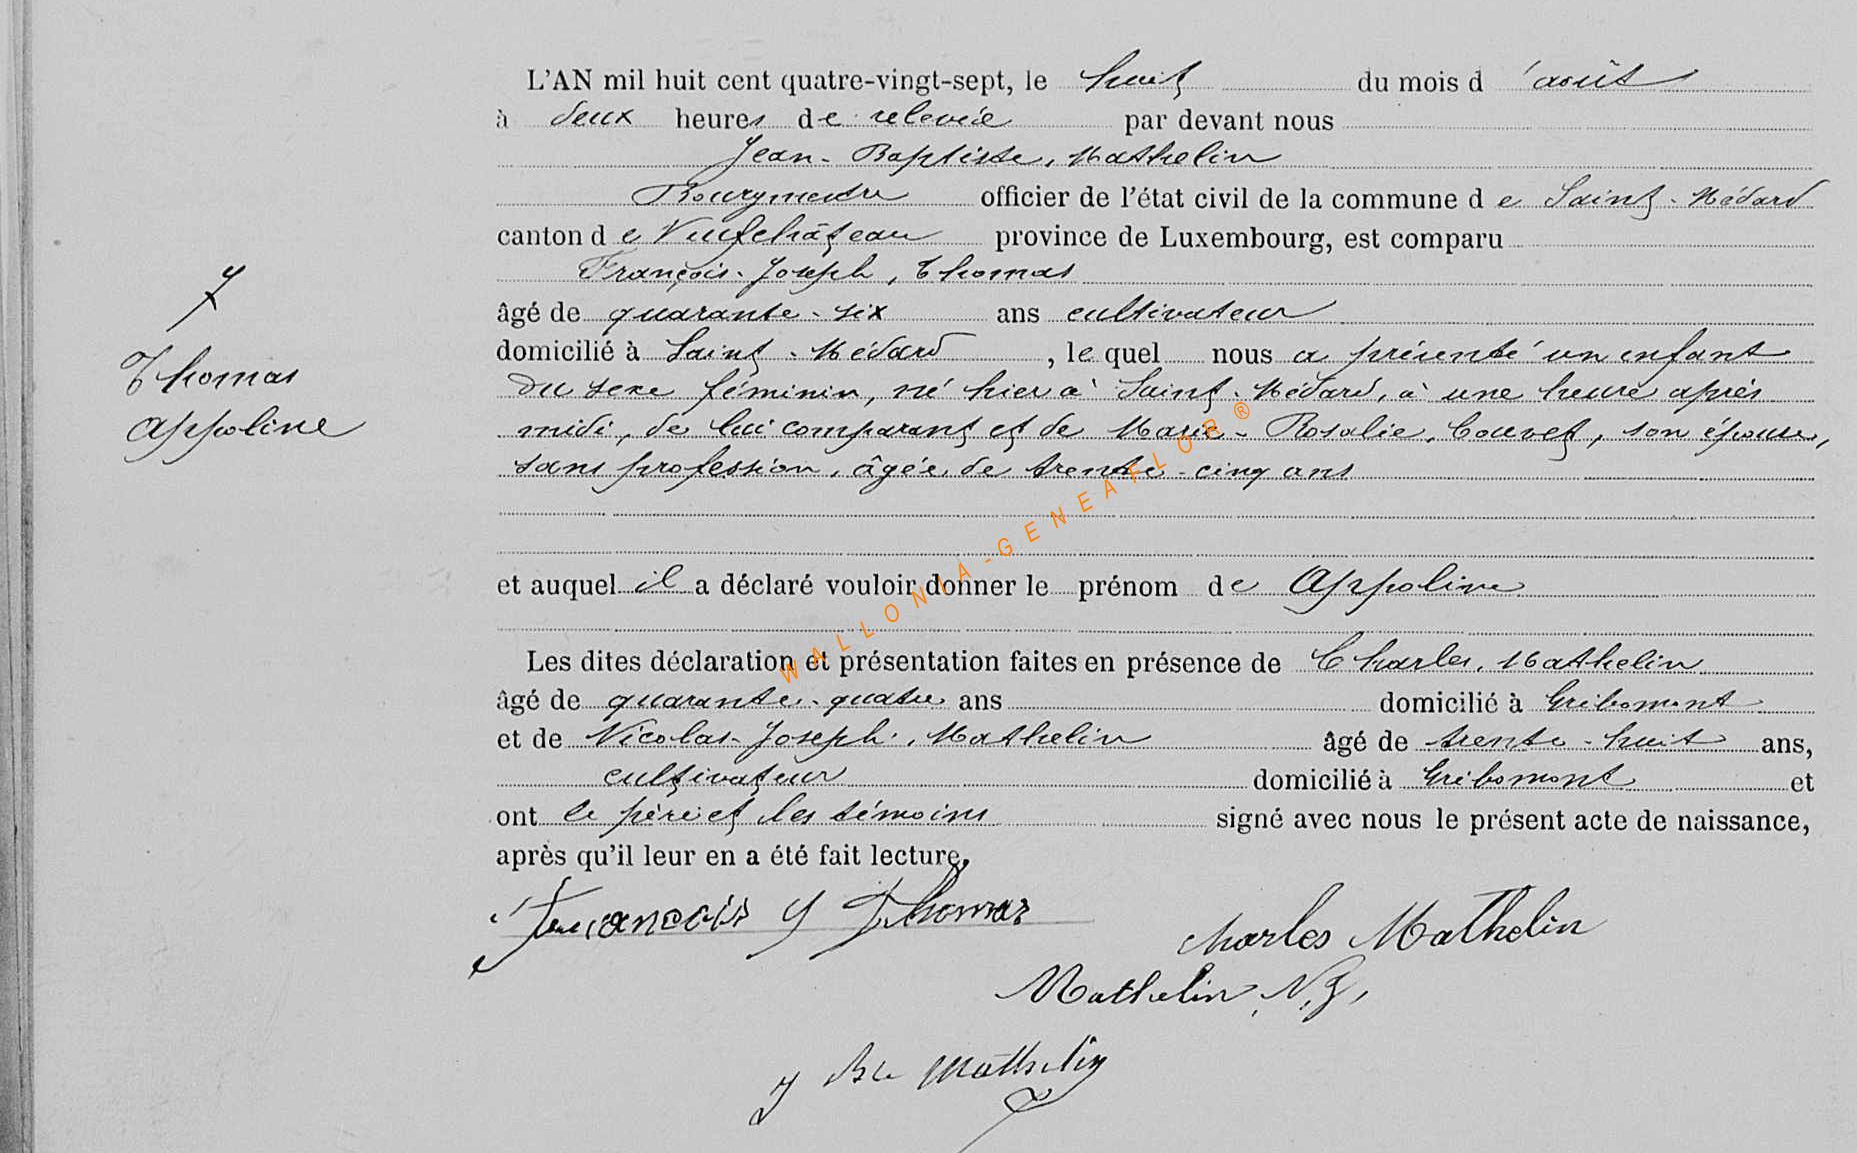 L'AN mil huit cent quatre-vingt-sept, le huit du mois d'août
à deux heures de relevée par devant nous
Jean-Baptiste, Mathelin
Bourgmestre officier de l'état civil de la commune de Saint-Médard
canton de Neufchâteau province de Luxembourg, est comparu
François-Joseph, Thomas
âgé de quarante-six ans cultivateur
domicilié à Saint-Médard, lequel nous a présenté un enfant
du sexe féminin, né hier à Saint-Médard, à une heure après
midi, de lui comparant et de Marie-Rosalie, Couvet, son épouse,
sans profession, âgée de trente-cinq ans
et auquel il a déclaré vouloir donner le prénom de Appoline
Les dites déclaration et présentation faites en présence de Charles, Mathelin
âgé de quarante-quatre ans domicilié à Gribomont
et de Nicolas-Joseph, Mathelin âgé de trente-huit ans,
cultivateur domicilié à Gribomont et
ont le père et les témoins signé avec nous le présent acte de naissance,
après qu'il leur en a été fait lecture.
7
Thomas
Appoline
François J Thomas
Charles Mathelin
Mathelin, N.J,
J Bte Mathelin
WALLONIA-GENEAFLOR ®